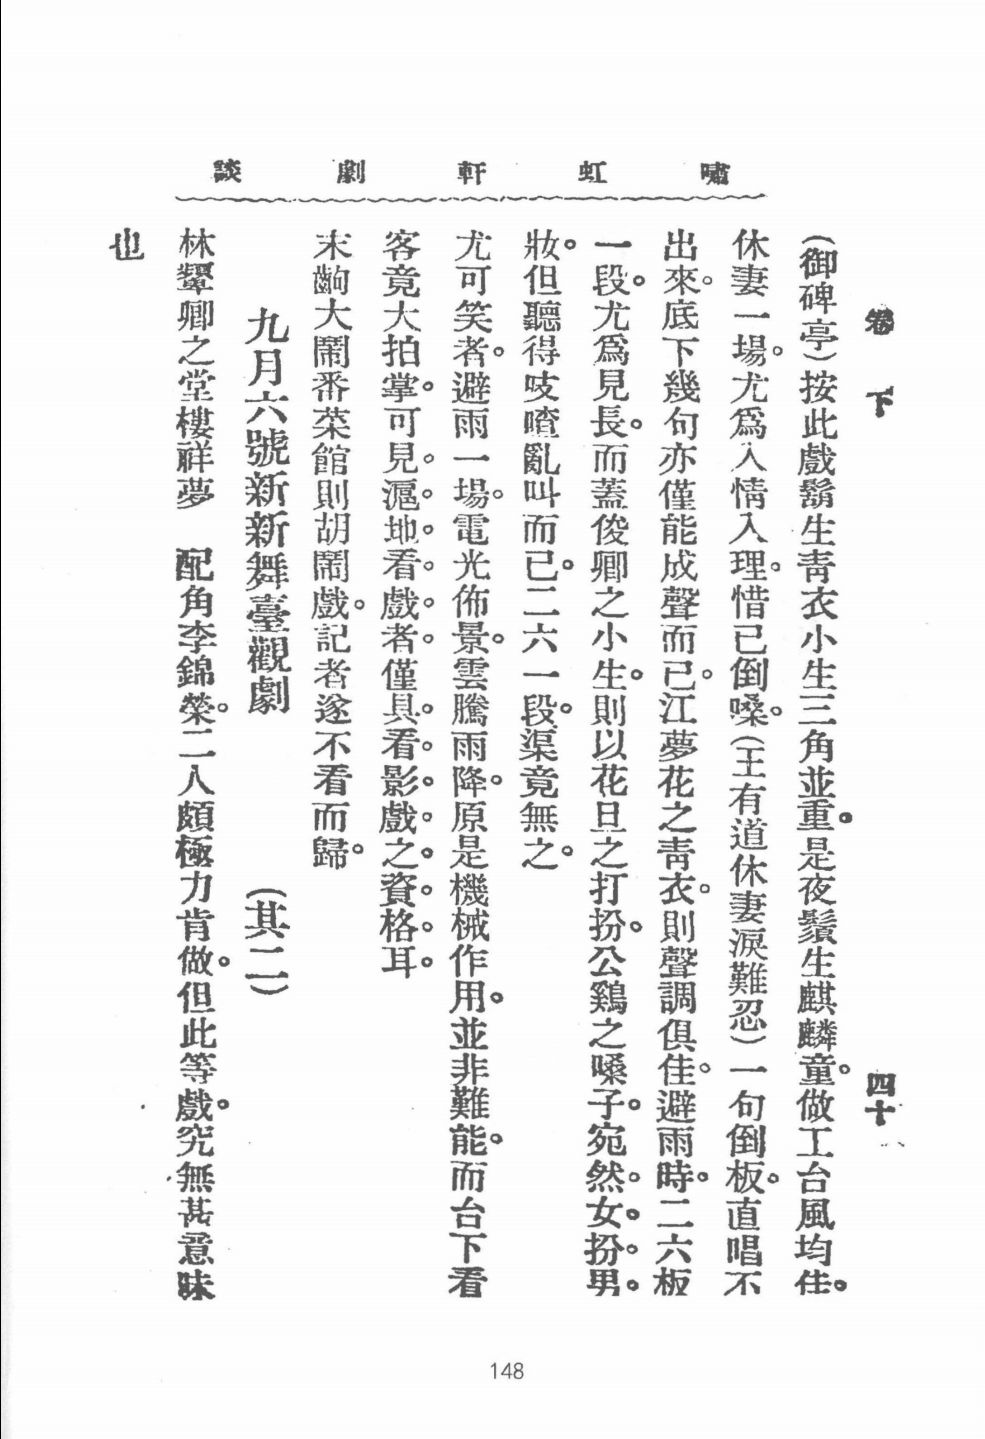 嘯虹軒劇談
卷下
四十
(御碑亭)按此戲鬍生靑衣小生三角並重。是夜鬚生麒麟童。做工台風均佳。
休妻一場。尤爲入情入理。惜已倒嗓。(王有道休妻淚難忍)一句倒板。直唱不
出來。底下幾句亦僅能成聲而已。江夢花之靑衣。則聲調俱佳。避雨時。二六板
一段。尤爲見長。而蓋俊卿之小生。則以花旦之打扮。公鷄之嗓子。宛然。女。扮。男。
妝。但聽得吱喳亂叫而已。二六一段。渠竟無之。
尤可笑者。避雨一場。電光佈景。雲騰雨降。原是機械作用。並非難能。而台下看
客竟大拍掌。可見。滬。地。看。戲。者。僅具。看。影。戲。之。資。格。耳。
末齣大鬧番菜館則胡鬧戲。記者遂不看而歸。
九月六號新新舞臺觀劇 (其二)
林顰卿之堂樓祥夢 配角李錦榮。二人頗極力肯做。但此等戲。究無甚意味
也
148